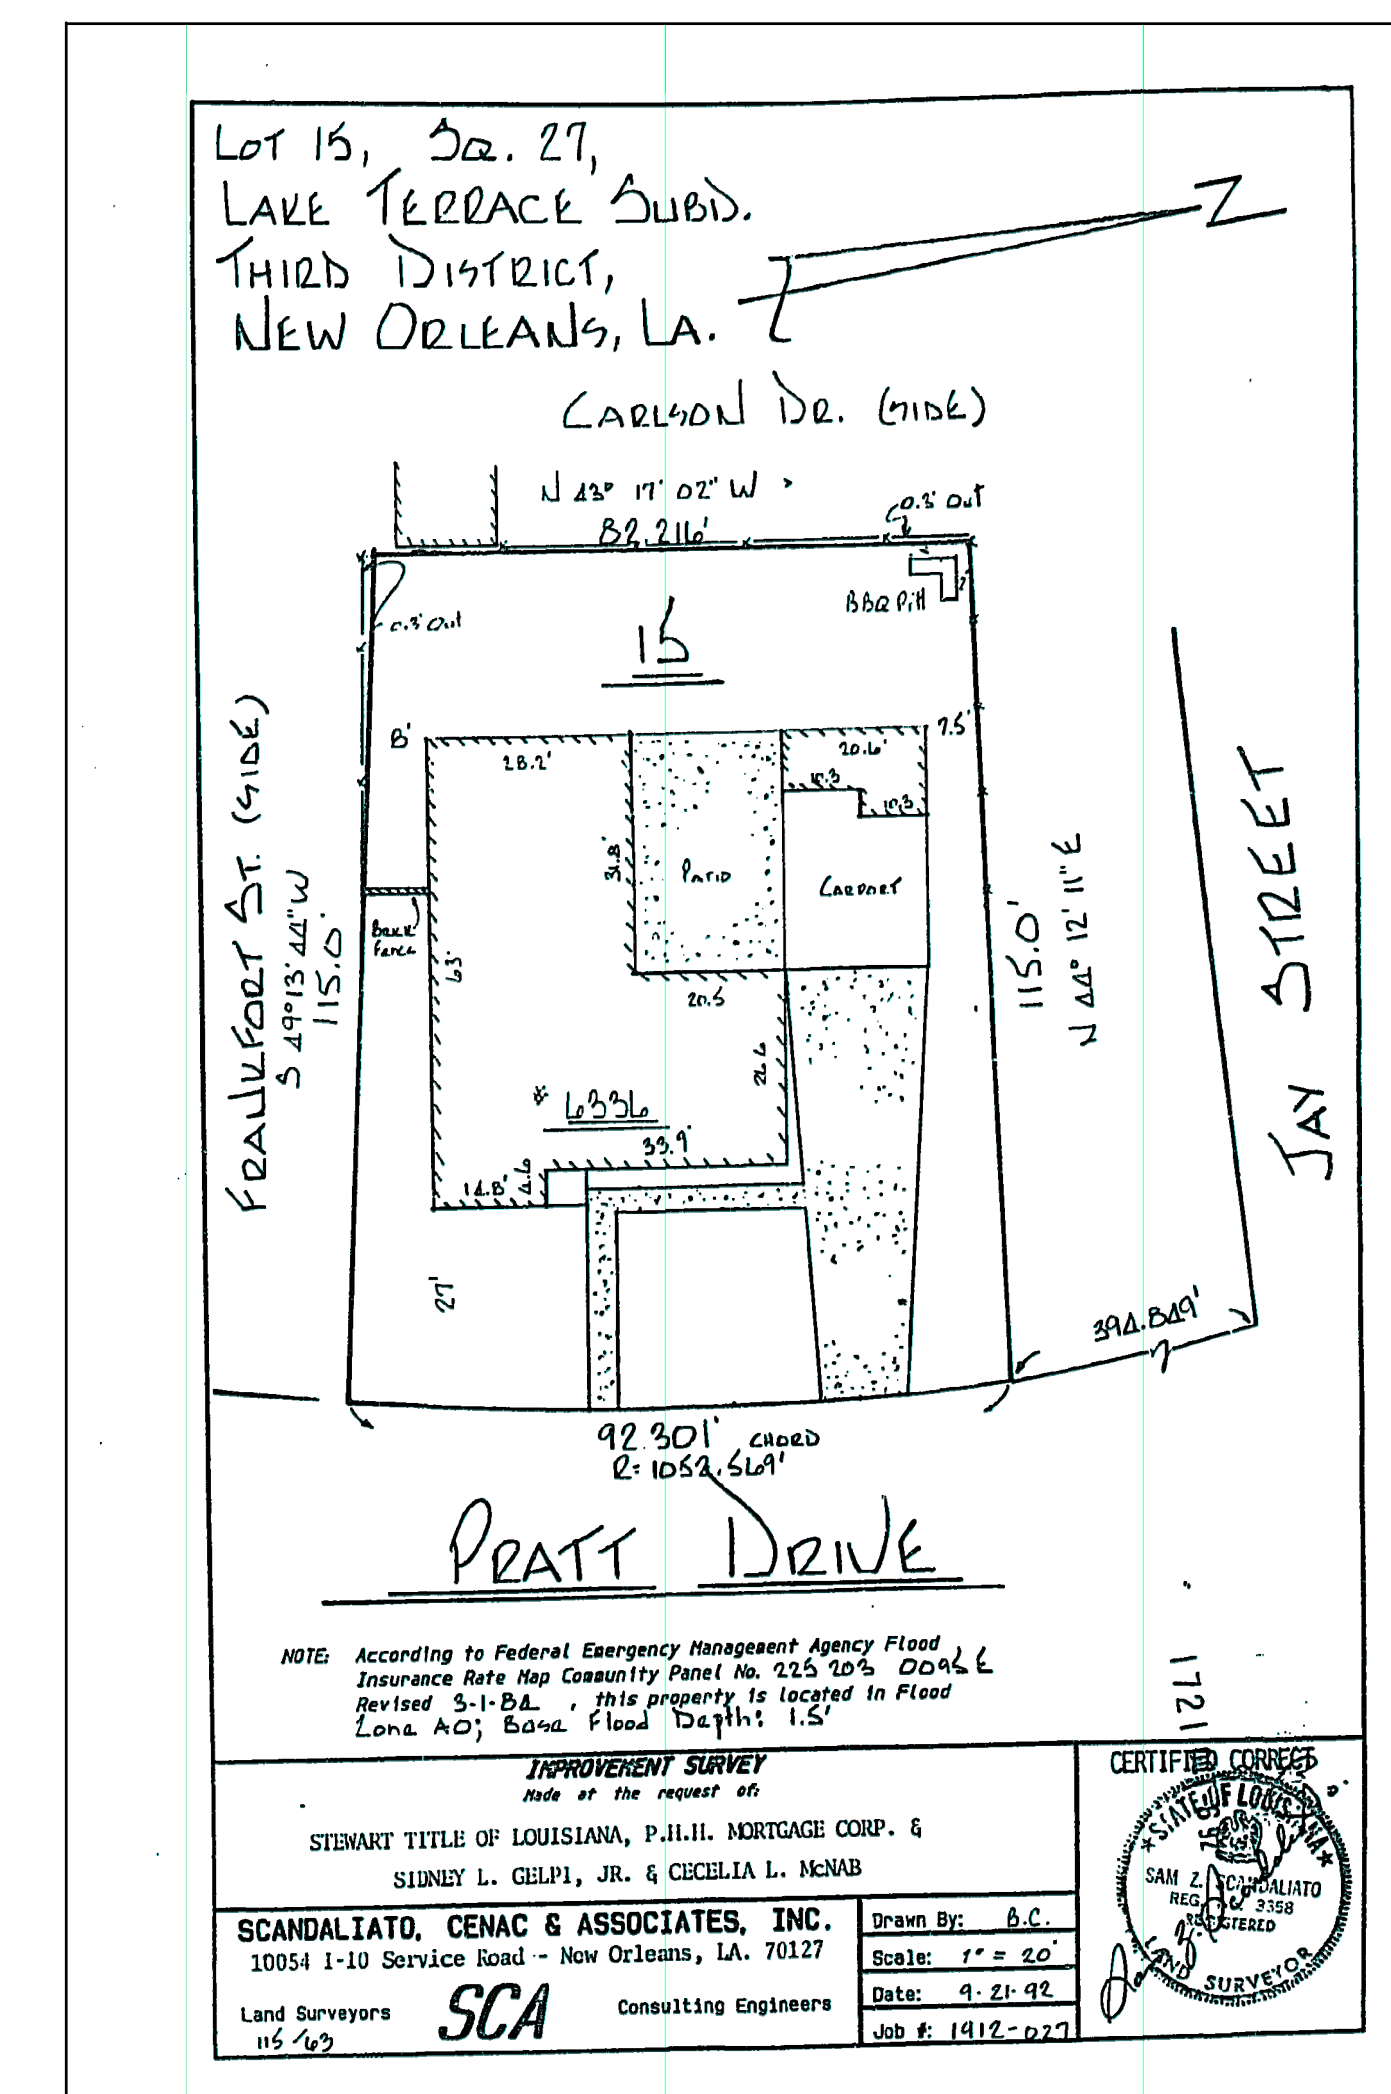 LOT 15, SQ. 27,
LAKE TERRACE SUBD.
THIRD DISTRICT,
NEW ORLEANS, LA.
Z
CARLSON DR. (SIDE)
N 43° 17' 02" W
82.216'
0.3' Out
0.3' Out
BBQ Pitt
15
8'
28.2'
20.6'
7.5'
10.3
10.3
31.8'
PATIO
CARPORT
BRICK
FENCE
63'
20.5
26.6
* 6336
33.9'
14.8'
4.6
27'
FRANKFORT ST. (SIDE)
S 49°13' 44" W
115.0'
115.0'
N 44° 12' 11" E
JAY STREET
394.849'
92.301' CHORD
R= 1052.569'
PRATT DRIVE
NOTE: According to Federal Emergency Management Agency Flood
Insurance Rate Map Community Panel No. 225 203 0095 E
Revised 3-1-84 , this property is located in Flood
Zone AO; Base Flood Depth: 1.5'
1721
IMPROVEMENT SURVEY
Made at the request of:
STEWART TITLE OF LOUISIANA, P.H.H. MORTGAGE CORP. &
SIDNEY L. GELPI, JR. & CECELIA L. McNAB
SCANDALIATO, CENAC & ASSOCIATES, INC.
10054 I-10 Service Road - New Orleans, LA. 70127
Land Surveyors
SCA
Consulting Engineers
115/63
Drawn By: B.C.
Scale: 1" = 20'
Date: 9-21-92
Job #: 1912-027
CERTIFIED CORRECT
STATE OF LOUISIANA
SAM Z. SCANDALIATO
REG. No. 3358
REGISTERED
LAND SURVEYOR